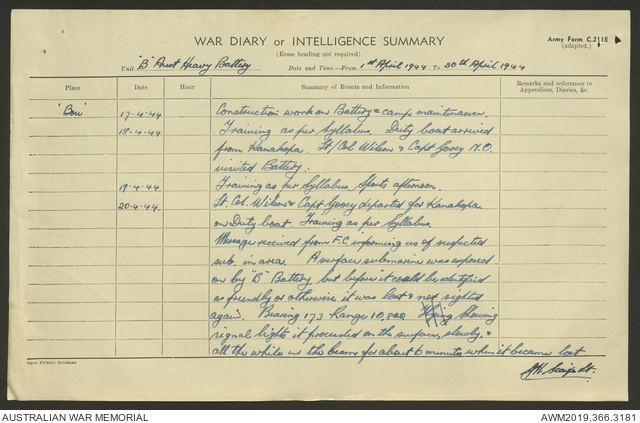 Army Form C.2118
(adapted.)
WAR DIARY or INTELLIGENCE SUMMARY
(Erase heading not required)
Unit "B" Aust Heavy Battery Date and Time—From 1st April 1944 To 30th April 1944
Place Date Hour Summary of Events and Information Remarks and references to Appendices, Diaries, &c.
'Bow' 17-4-44 Construction work on Battery & camp maintenance.
18-4-44 Training as per Syllabus. Duty boat arrived
from Kanakopa. Lt/Col Wilson & Capt Gooey M.O.
visited Battery.
19-4-44 Training as per Syllabus. Sports afternoon.
20-4-44. Lt. Col. Wilson & Capt Gooey departed for Kanakopa
on Duty boat. Training as per Syllabus.
Message received from F.C informing us of suspected
sub. in area. A surface submarine was exposed
on by "B" Battery but before it could be identified
as friendly or otherwise it was lost & not sighted
again. Bearing 173 Range 10,800 Showing
signal lights it proceeded on the surface, slowly, &
all the while in the beam for about 6 minutes when it became lost
Lt.
Govt. Printer, Brisbane
AUSTRALIAN WAR MEMORIAL AWM2019.366.3181